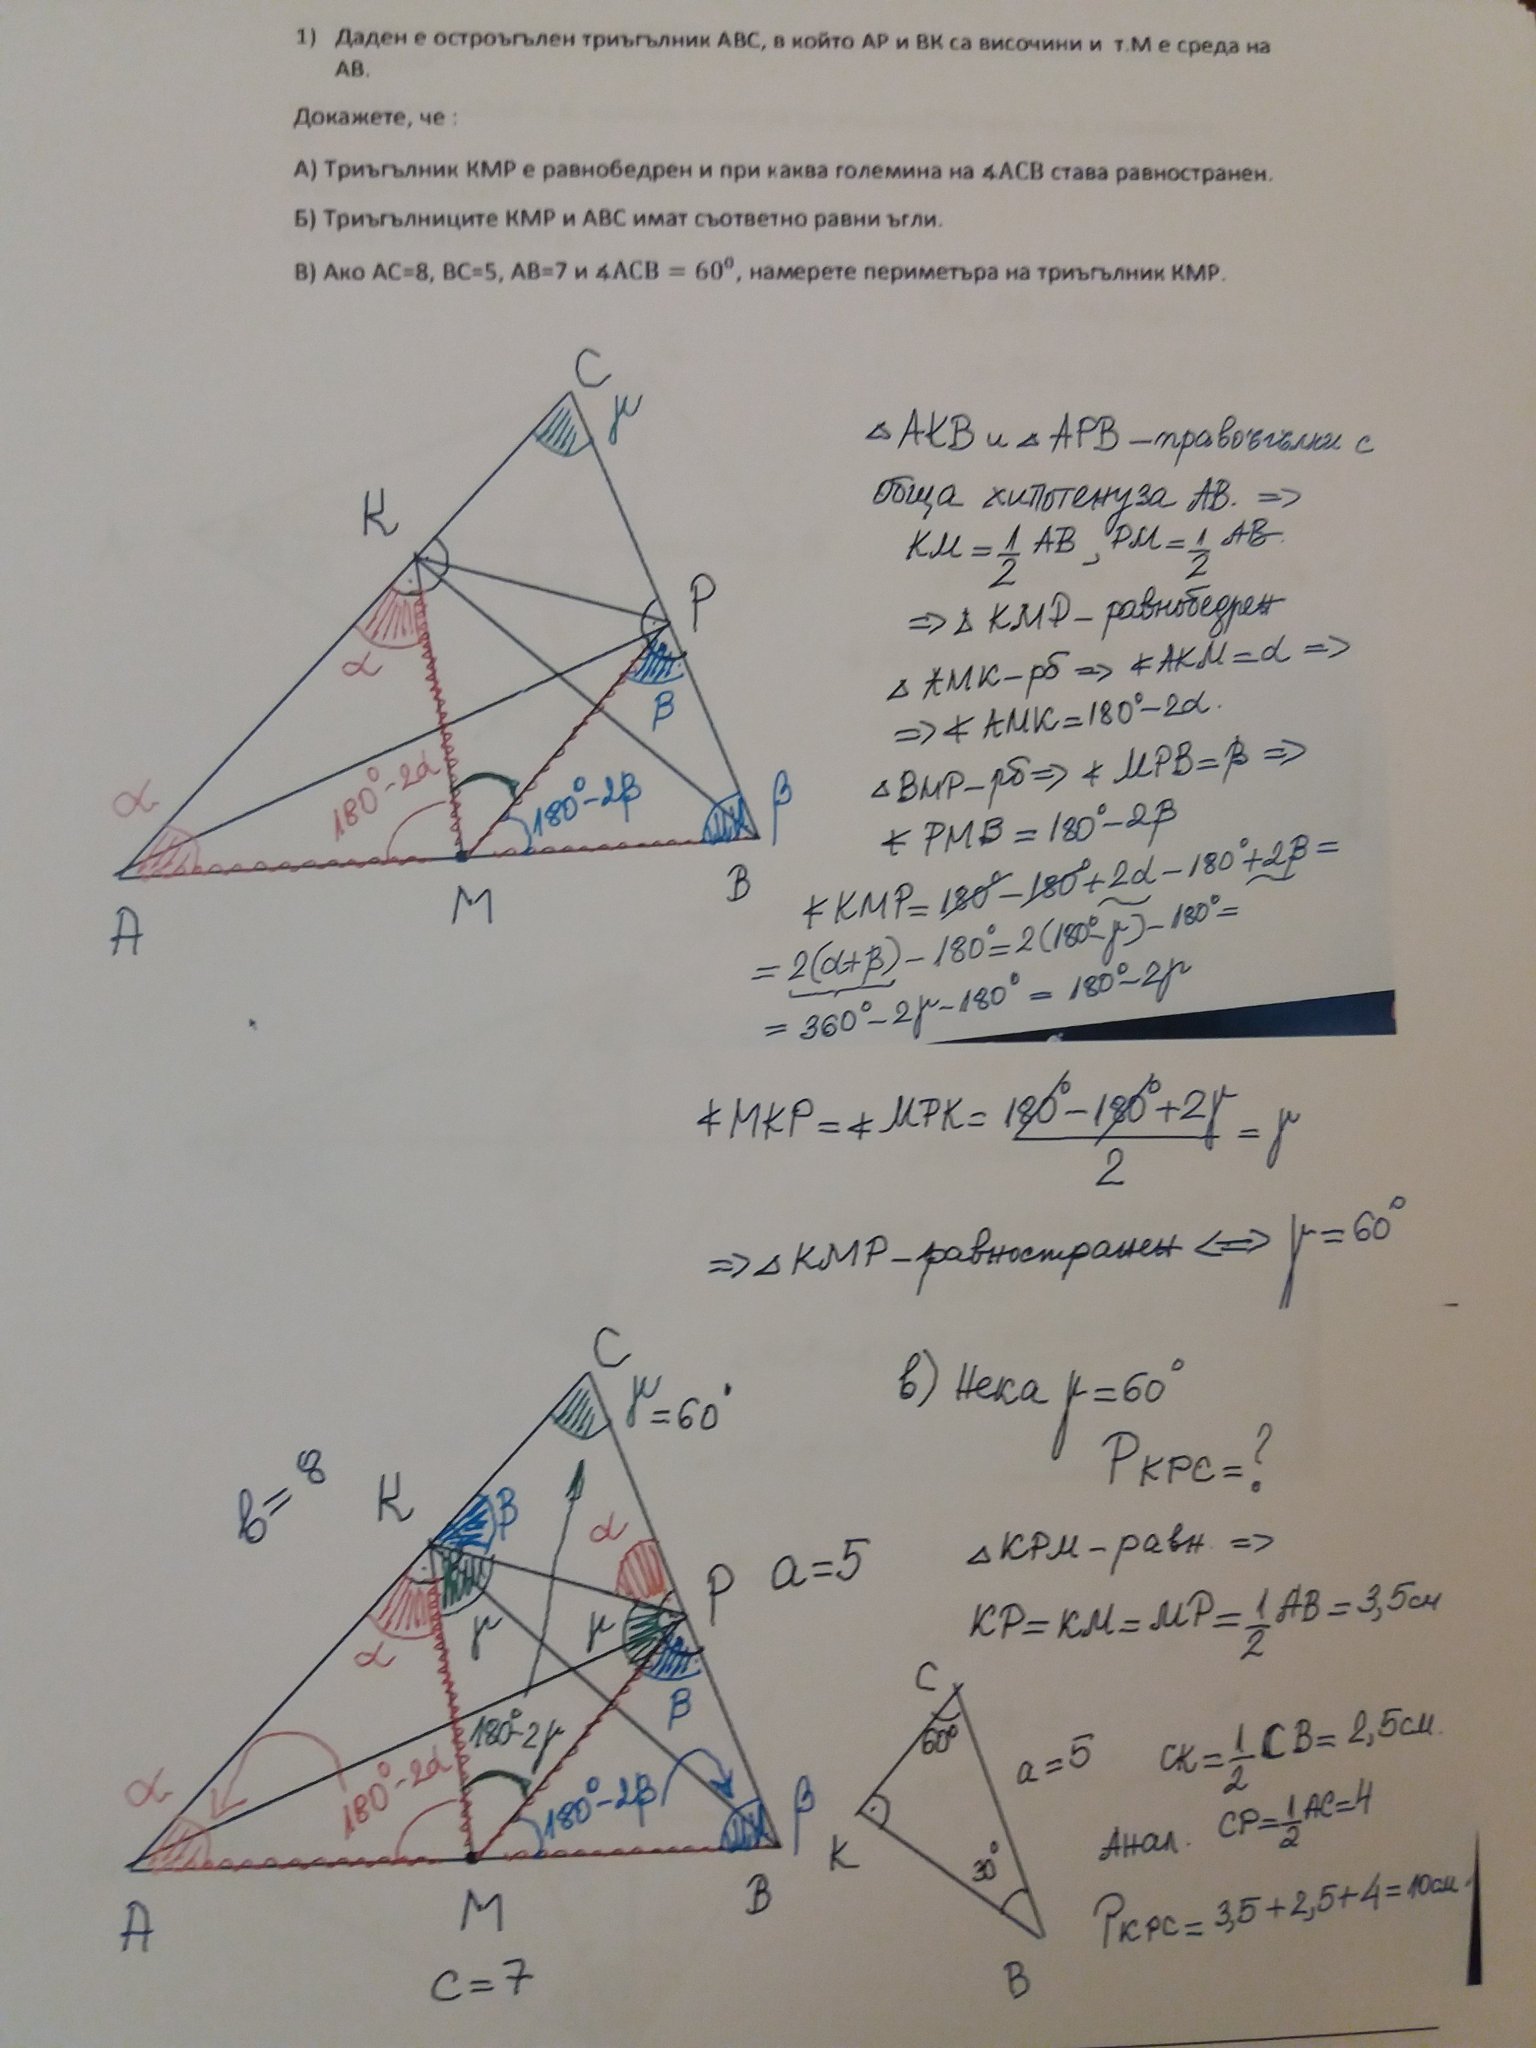 1) Даден е остроъгълен триъгълник ABC, в който AP и BK са височини и т.M е среда на
AB.
Докажете, че :
А) Триъгълник KMP е равнобедрен и при каква големина на ∢ACB става равностранен.
Б) Триъгълниците KMP и ABC имат съответно равни ъгли.
В) Ако AC=8, BC=5, AB=7 и ∢ACB = 60⁰, намерете периметъра на триъгълник KMP.
C
γ
K
P
α
β
α
180°-2α
180°-2β
β
A
M
B
△AKB и △APB – правоъгълни с
обща хипотенуза AB. =>
KM = 1/2 AB, PM = 1/2 AB.
=> △KMP – равнобедрен
△AMK – рб => ∢AKM = α =>
=> ∢AMK = 180° - 2α.
△BMP – рб => ∢MPB = β =>
∢PMB = 180° - 2β
∢KMP = 180° - 180° + 2α - 180° + 2β =
= 2(α+β) - 180° = 2(180° - γ) - 180° =
= 360° - 2γ - 180° = 180° - 2γ
∢MKP = ∢MPK = (180° - 180° + 2γ)/2 = γ
=> △KMP – равностранен <=> γ = 60°
C
γ = 60°
b = 8
K
β
α
P
a = 5
γ
γ
α
β
180°-2γ
α
180°-2α
180°-2β
β
A
M
B
c = 7
в) Нека γ = 60°
PKPC = ?
△KPM – равн. =>
KP = KM = MP = 1/2 AB = 3,5см
C
60°
a = 5
K
30°
B
CK = 1/2 CB = 2,5см.
Анал. CP = 1/2 AC = 4
PKPC = 3,5 + 2,5 + 4 = 10см.